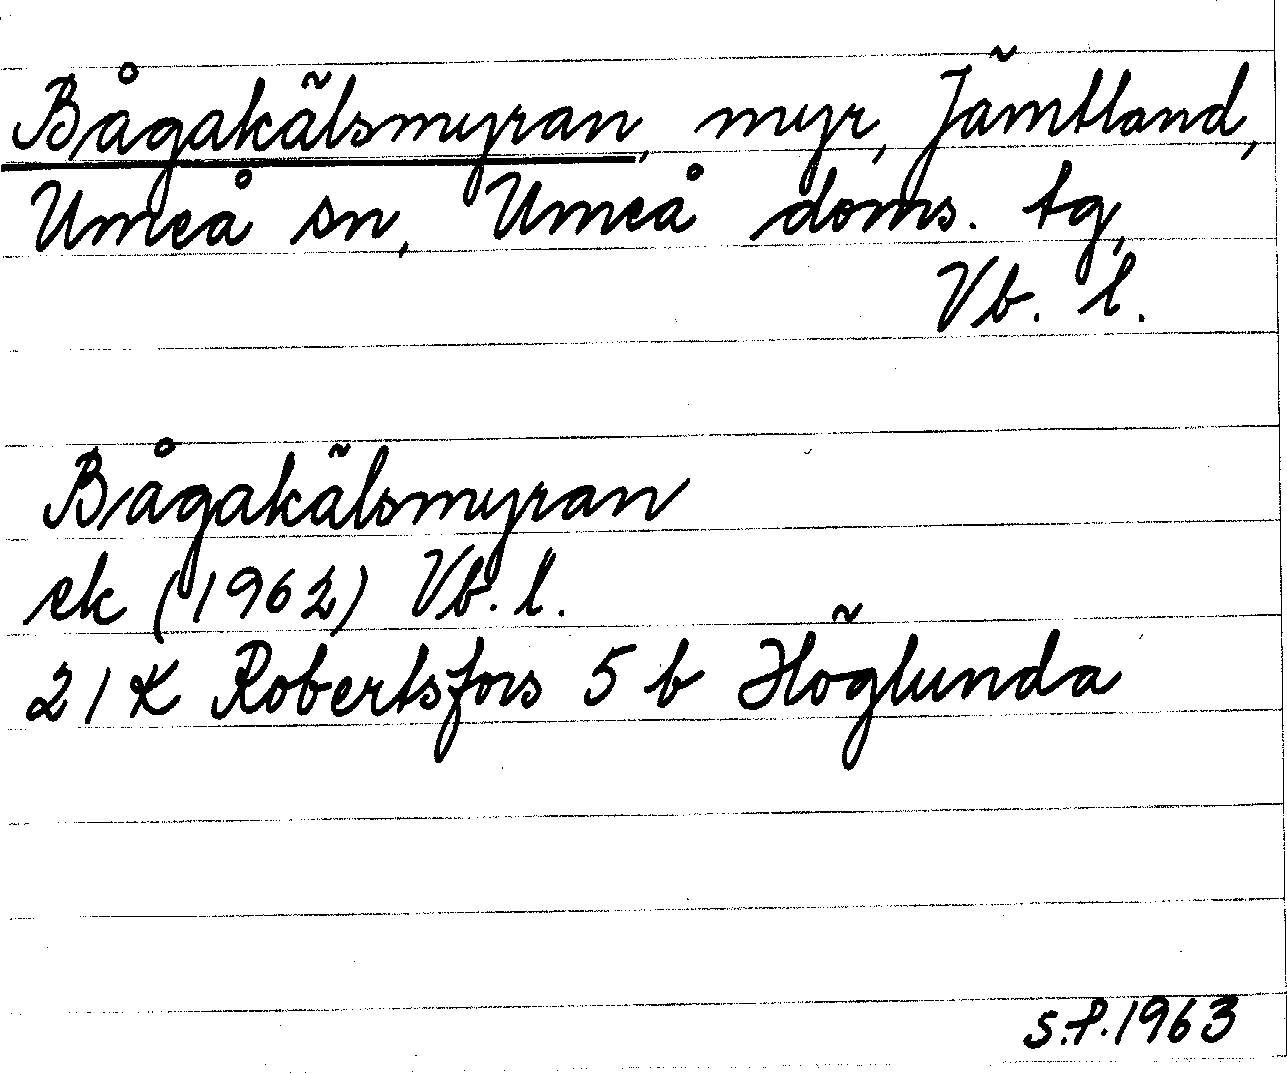 Bågakälsmyran, myr, Jämtland,
Umeå sn, Umeå doms. tg,
Vb. l.
Bågakälsmyran
ek (1962) Vb. l.
21K Robertsfors 5 b Höglunda
S.P. 1963